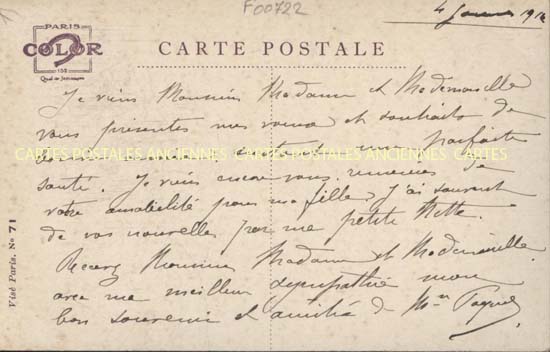 F00722
4 Janvier 191
PARIS
COLOR
152
Quai de Jemmapes
CARTE POSTALE
Je viens Monsieur Madame et Mademoiselle
vous présenter mes vœux et souhaits de
bonne année surtout une parfaite
CARTES POSTALES ANCIENNES CARTES POSTALES ANCIENNES CARTES
santé. Je viens encore vous remercier de
votre amabilité pour ma fille, j'ai souvent
de vos nouvelles par ma petite
Recevez Monsieur Madame et Mademoiselle
avec ma meilleur sympathie mon
bon souvenir et amitié de Mme
Visé Paris. No 71